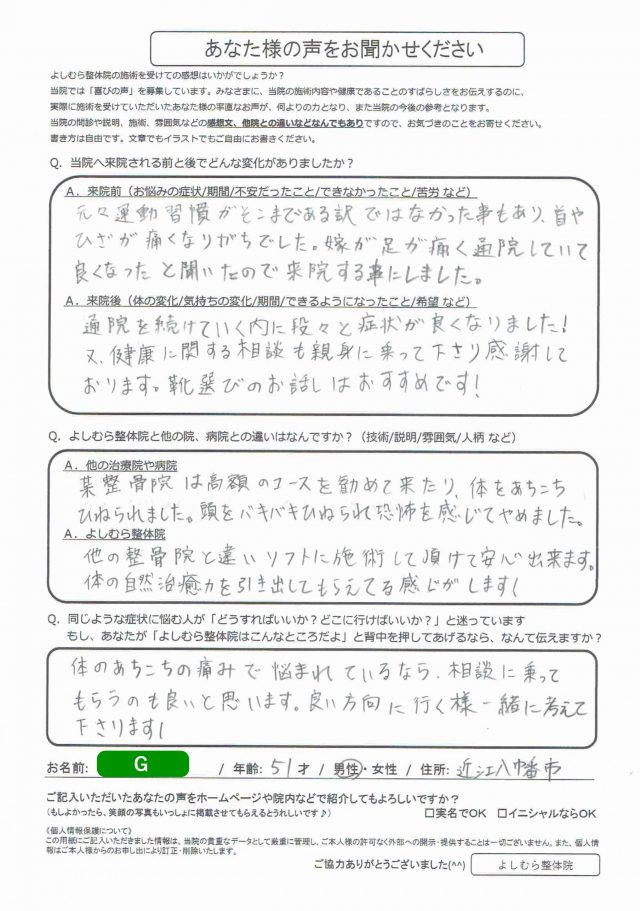 あなた様の声をお聞かせください
よしむら整体院の施術を受けての感想はいかがでしょうか？
当院では「喜びの声」を募集しています。みなさまに、当院の施術内容や健康であることのすばらしさをお伝えするのに、
実際に施術を受けていただいたあなた様の率直なお声が、何よりの力となり、また当院の今後の参考となります。
当院の問診や説明、施術、雰囲気などの感想文、他院との違いなどなんでもありですので、お気づきのことをお寄せください。
書き方は自由です。文章でもイラストでもご自由にお書きください。
Q．当院へ来院される前と後でどんな変化がありましたか？
A．来院前（お悩みの症状/期間/不安だったこと/できなかったこと/苦労 など）
元々運動習慣がそこまである訳ではなかった事もあり、首や
ひざが痛くなりがちでした。嫁が足が痛く通院していて
良くなったと聞いたので来院する事にしました。
A．来院後（体の変化/気持ちの変化/期間/できるようになったこと/希望 など）
通院を続けていく内に段々と症状が良くなりました！
又、健康に関する相談も親身に乗って下さり感謝して
おります。靴選びのお話しはおすすめです！
Q．よしむら整体院と他の院、病院との違いはなんですか？（技術/説明/雰囲気/人柄 など）
A．他の治療院や病院
某整骨院は高額のコースを勧めて来たり、体をあちこち
ひねられました。頭をバキバキひねられ恐怖を感じてやめました。
A．よしむら整体院
他の整骨院と違いソフトに施術して頂けて安心出来ます。
体の自然治癒力を引き出してもらえてる感じがします！
Q．同じような症状に悩む人が「どうすればいいか？どこに行けばいいか？」と迷っています
もし、あなたが「よしむら整体院はこんなところだよ」と背中を押してあげるなら、なんて伝えますか？
体のあちこちの痛みで悩まれているなら、相談に乗って
もらうのも良いと思います。良い方向に行く様一緒に考えて
下さります！
お名前: G / 年齢: 51才 / 男性・女性 / 住所: 近江八幡市
ご記入いただいたあなたの声をホームページや院内などで紹介してもよろしいですか？
（もしよかったら、笑顔の写真もいっしょに掲載させてもらえるとうれしいです♪） □実名でOK □イニシャルならOK
《個人情報保護について》
この用紙にご記入いただきました情報は、当院の貴重なデータとして厳重に管理し、ご本人様の許可なく外部への開示・提供することは一切ございません。また、個人情
報はご本人様からのお申し出により訂正・削除いたします。
ご協力ありがとうございました(^^) よしむら整体院